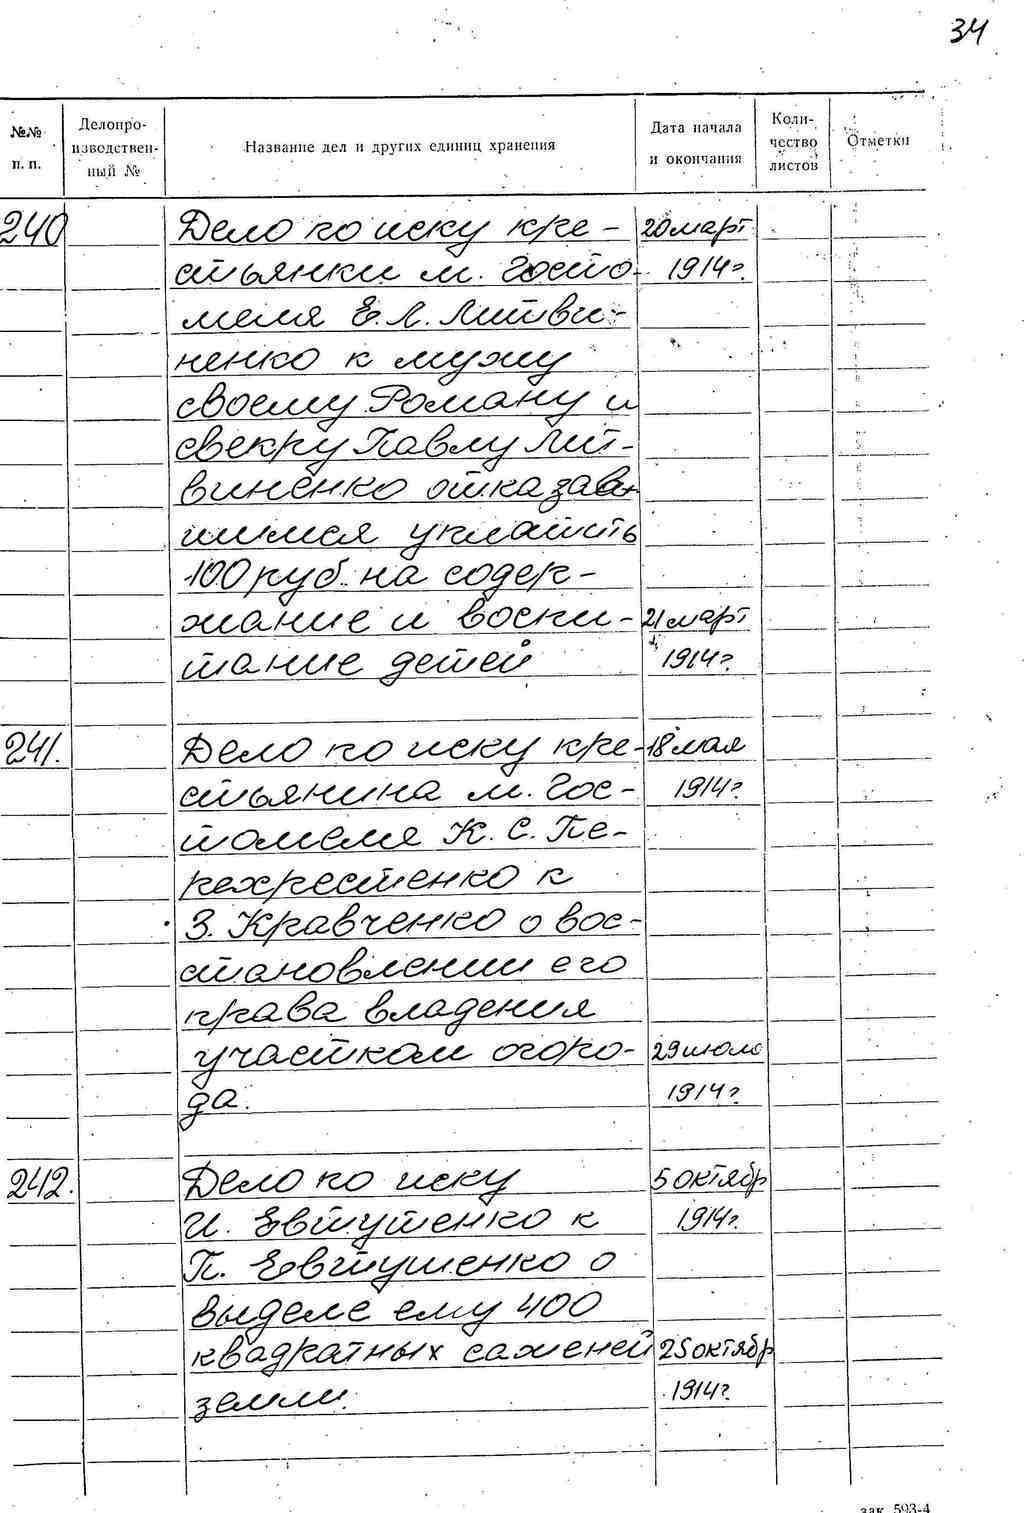 34
№№ п. п. Делопроизводствен-ный № Название дел и других единиц хранения Дата начала и окончания Коли-чество листов Отметки
240 Дело по иску кре- 20 март
стьянки м. Госто- 1914 г.
меля Е. Л. Литви-
ненко к мужу
своему Роману и
свекру Павлу Лит-
виненко отказав-
шимся уплатить
100 руб. на содер-
жание и воспи- 21 март
тание детей 1914 г.
241. Дело по иску кре- 18 мая
стьянина м. Гос- 1914 г.
томеля К. С. Пе-
рехрестенко к
З. Кравченко о вос-
становлении его
права владения
участком огоро- 29 июля
да. 1914 г.
242. Дело по иску 5 октябр
И. Евтушенко к 1914 г.
П. Евтушенко о
выделе ему 400
квадратных саженей 25 октябр
земли. 1914 г.
зак. 593-4